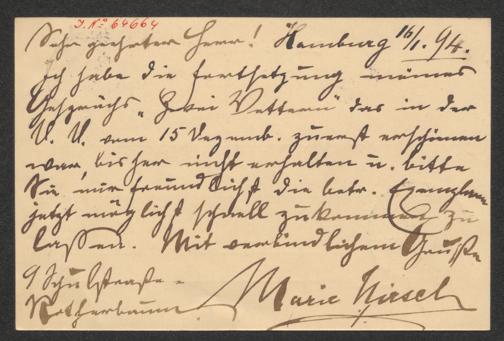 J. No 64664
Sehr geehrter Herr! Hamburg 16/1. 94.
Ich habe die Fortsetzung meines
Gesprächs „Zwei Vettern" das in der
U. V. vom 15 Dezemb. zuerst erschienen
war, bisher nicht erhalten u. bitte
Sie nur freundlichst die betr. Exemplare
jetzt möglichst schnell zukommen zu
lassen. Mit verbindlichem Gruße
9 Schulstraße -
Rotherbaum. Marie Hirsch